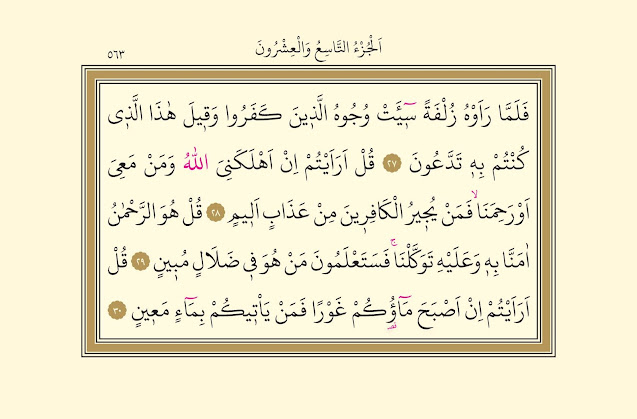 اَلْجُزْءُ التَّاسِعُ وَالْعِشْرُونَ
٥٦٣
فَلَمَّا رَاَوْهُ زُلْفَةً سٓيـَٔتْ وُجُوهُ الَّذ۪ينَ كَفَرُوا وَق۪يلَ هٰذَا الَّذ۪ى
كُنْتُمْ بِه۪ تَدَّعُونَ ﴿٢٧﴾ قُلْ اَرَاَيْتُمْ اِنْ اَهْلَكَنِىَ اللّٰهُ وَمَنْ مَعِىَ
اَوْ رَحِمَنَاۙ فَمَنْ يُج۪يرُ الْكَافِر۪ينَ مِنْ عَذَابٍ اَل۪يمٍ ﴿٢٨﴾ قُلْ هُوَ الرَّحْمٰنُ
اٰمَنَّا بِه۪ وَعَلَيْهِ تَوَكَّلْنَاۚ فَسَتَعْلَمُونَ مَنْ هُوَ ف۪ى ضَلَالٍ مُب۪ينٍ ﴿٢٩﴾ قُلْ
اَرَاَيْتُمْ اِنْ اَصْبَحَ مَٓاؤُ۬كُمْ غَوْرًا فَمَنْ يَأْت۪يكُمْ بِمَٓاءٍ مَع۪ينٍ ﴿٣٠﴾